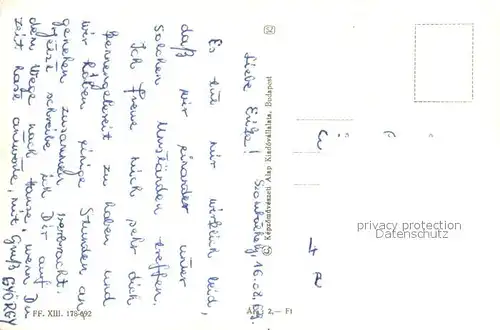 Szombathely, 16.08.
Liebe Erika!
Es tut mir wirklich leid,
daß wir einander unter
solchen Umständen treffen.
Ich freue mich sehr dich
kennengelernt zu haben und
wir haben einige Stunden an-
genehm zusammen verbracht.
Jetzt schreibe ich Dir auf
dem Wege nach Hause, wenn Du
Zeit hast antworte, mit Gruß GYÖRGY
FF. XIII. 178-692
Képzőművészeti Alap Kiadóvállalata, Budapest
Ára: 2,— Ft
privacy protection
Datenschutz